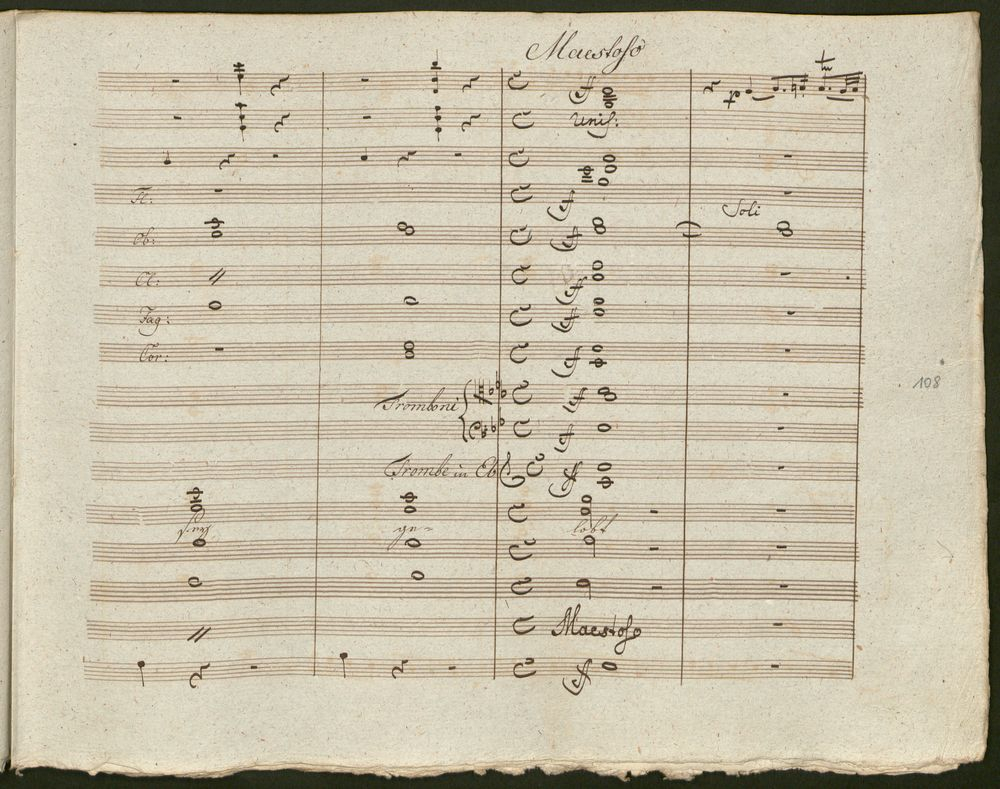 Maestoso
ff
p
tr
Unis:
Fl:
ff
Soli
Ob:
ff
Cl:
ff
Fag:
ff
Cor:
ff
108
Tromboni
ff
ff
Trombe in Eb
ff
sey ge- lobt
Maestoso
ff